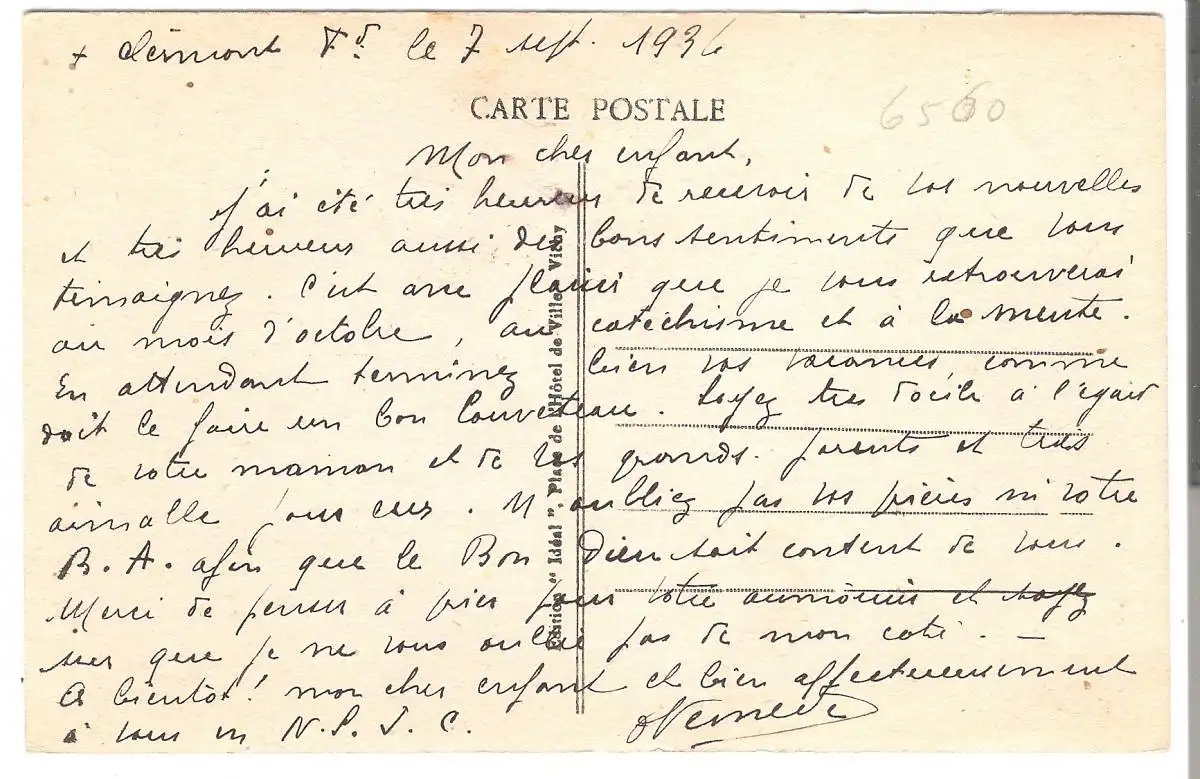 + Clermont Fd. le 7 sept. 1936
CARTE POSTALE
6560
Mon cher enfant,
J'ai été très heureux de recevoir de vos nouvelles
et très heureux aussi des bons sentiments que vous
témoignez. C'est avec plaisir que je vous retrouverai
au mois d'octobre, au catéchisme et à la meute.
En attendant terminez bien vos vacances, comme
doit le faire un bon louveteau. Soyez très docile à l'égard
de votre maman et de vos grands-parents et très
aimable pour eux. N'oubliez pas vos prières ni votre
B. A. afin que le Bon Dieu soit content de vous.
Merci de penser à prier pour votre aumônier et soyez
sûr que je ne vous oublie pas de mon côté. —
A bientôt! mon cher enfant et bien affectueusement
à vous en N. S. J. C.
Edition "Idéal" Place de l'Hôtel de Ville Vichy